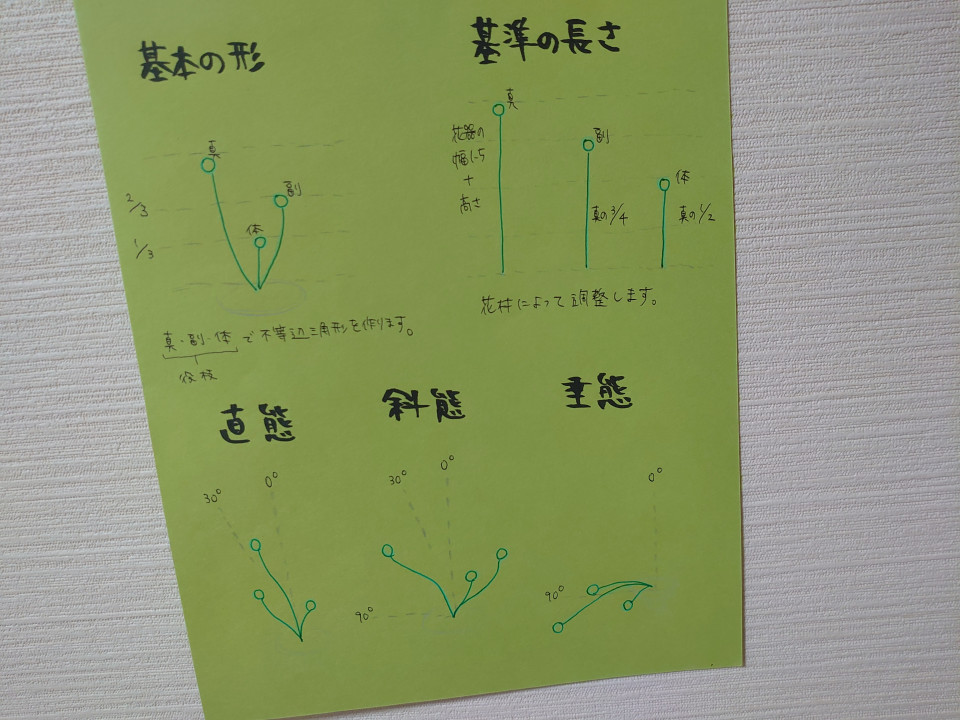 基本の形
真
副
体
2/3
1/3
真・副・体で不等辺三角形を作ります。
役枝
基準の長さ
真
副
体
花器の
幅1.5
+
高さ
真の3/4
真の1/2
花材によって調整します。
直態
30°
0°
斜態
30°
0°
90°
垂態
0°
90°